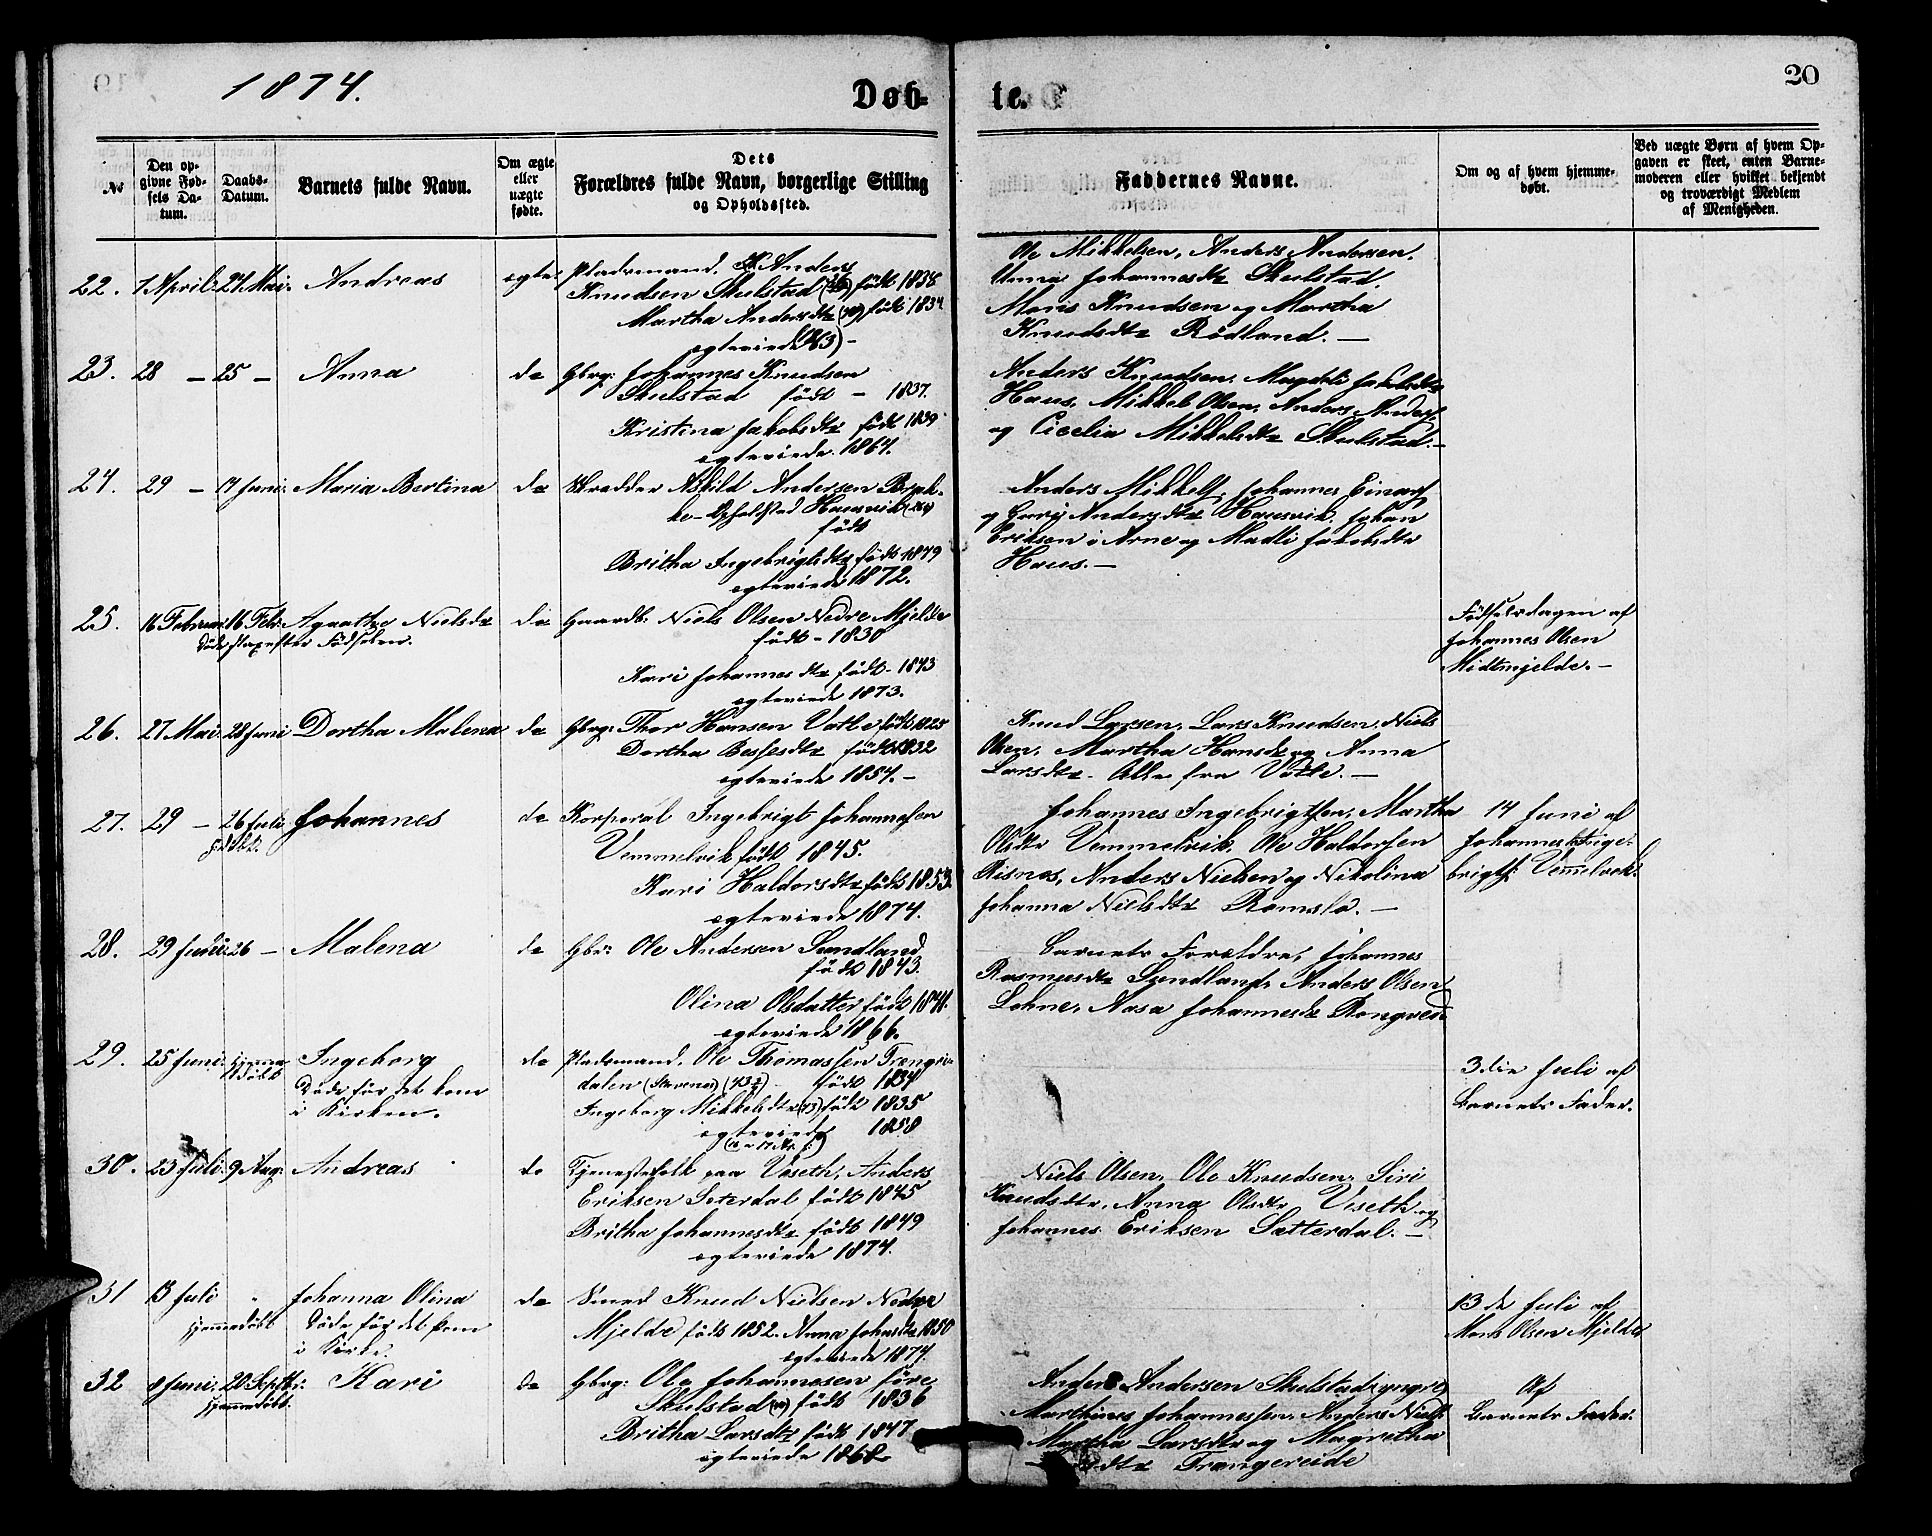 1874.
Døb-
te.
20
№
Den op-
givne Fød-
sels Da-
tum.
Daabs-
Datum.
Barnets fulde Navn.
Om ægte
eller
uægte
fødte.
Dets
Forældres fulde Navn, borgerlige Stilling
og Opholdssted.
Faddernes Navne.
Om og af hvem hjemme-
døbt.
Ved uægte Børn af hvem Op-
gaven er skeet, enten Barne-
moderen eller hvilket bekjendt
og troværdigt Medlem
af Menigheden.
22. 1 April. 24 Mai. Andreas
egte Pladsmand. Anders
Knudsen Skulstad født 1838
Martha Andersdtr født 1834
egteviede
Ole Mikkelsen, Anders Andersen,
Anna Johannesdtr Skulstad,
Mons Knudsen og Martha
Knudsdtr Rødland. —
23. 28 — 25 — Anna
do Gbrg: Johannes Knudsen
Skulstad født — 1837.
Kristena Jakobsdtr født 1839
egteviede 1864.
Anders Knudsen, Magdeli Jakobsdtr
Haus, Mikkel Olsen, Anders Anders
og Cicelia Mikkelsdtr Skulstad. —
24. 29 — 14 Juni. Maria Bertina
do Skradder Askild Andersen Brek-
ke — Opholdsted Hausvik
født
Britha Ingebrigtsdtr født 1849
egteviede 1872.
Anders Mikkels, Johannes Einars
og Andersdtr Hausvik, Johan
Eriksen i Arne og Madli Jakobsdtr
Haus. —
25. 16 Februar 16 Febr. Agathe Nielsdtr
Døde strax efter Fødselen.
do Gaardb. Niels Olsen Nedre Mjelde
født — 1830
Kari Johannesdtr født — 1843
egteviede 1873.
Fødselsdagen af
Johannes Olsen
Midtmjelde. —
26. 27 Mai. 28 Juni Dortha Malena
do Gbrg: Thor Hansen Votle født 1825
Dortha født 1832
egteviede 1854. —
Knud Larsen, Lars Knudsen, Niels
Olsen, Martha Hansdtr og Anna
Larsdtr. Alle fra Votle. —
27. 29 — 26 Juli Johannes
do Korporal Ingebrigt Johannesen
Vemmelvik født 1845.
Kari Haldorsdtr født 1853
egteviede 1874.
Johannes Ingebrigtsen, Martha
Olsdtr Vemmelvik, Ole Haldorsen
Risnes, Anders Nielsen og Nikolina
Johanna Nielsdtr Romslo. —
14 Juni af
Johannes Inge-
brigts. Vemmelvek.
28. 29 Juni 26 — Malena
do Gbr: Ole Andersen Sundland
født 1843.
Olina Olsdatter født 1841.
egteviede 1866.
Barnets Forældre, Johannes
Rasmusdtr Sundland, Anders Olsen
Lohne, Aasa Johannesdtr Rongved
29. 25 Juni. Hjemme
døbt Ingeborg
Døde før det kom
i Kirken.
do Pladsmand. Ole Thomassen Trengrei-
dalen født 1834
Ingeborg Mikkelsdtr født 1835
egteviede 1858
3die Juli af
Barnets Fader.
30. 23 Juli. 9 Aug. Andreas
do Tjenestefolk paa Veseth, Anders
Eriksen Seterdal født 1845
Britha Johannesdtr født 1849
egteviede 1874.
Niels Olsen, Ole Knudsen, Siri
Knudsdtr, Anna Olsdtr Veseth og
Johannes Eriksen Satterdal. —
31 13 Juli " Johanna Olina
Hjemmedøbt Døde før det kom
i Kirke.
do Smed Knud Nielsen Nedre
Mjelde født 1852. Anna Johansdtr 1850
egteviede 1874.
13de Juli af
Mons Olsen Mjelde
32 8 Juni. 20 Septbr: Kari
Hjemmedøbt.
do Gbrg: Ole Johannesen Jøre
Skulstad født 1836
Britha Larsdtr født 1847
egteviede 1868
Anders Andersen Skulstad yngre,
Marthines Johannessen, Anders Niels
Martha Larsdtr og Magretha
Trengereide
Af
Barnets Fader.